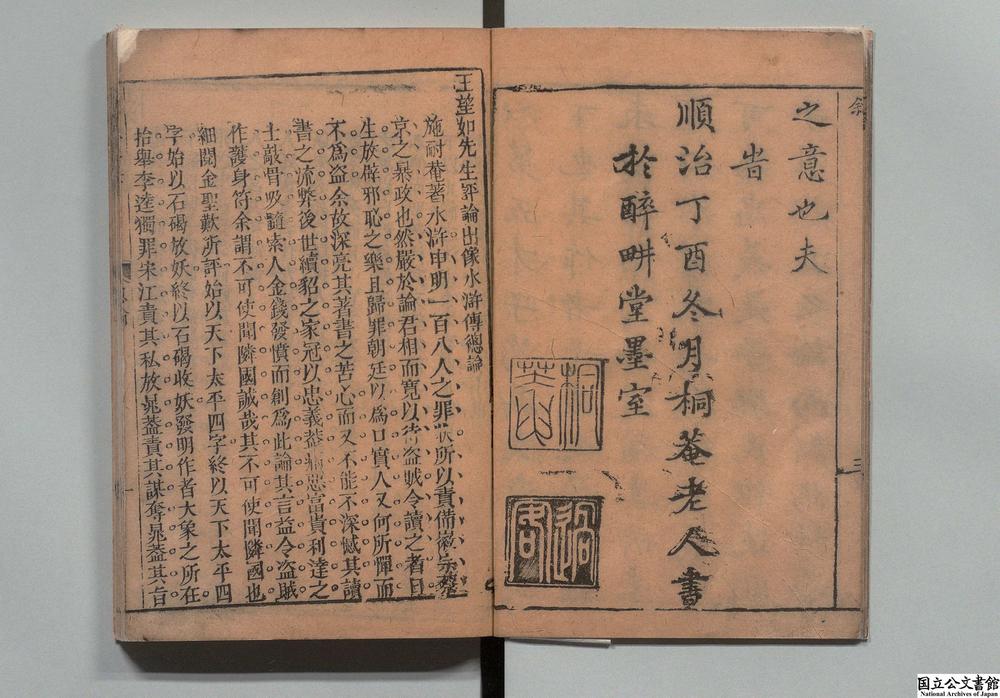 敘
之意也夫
旹
順治丁酉冬月桐菴老人書
於醉畊堂墨室
三
王望如先生評論出像水滸傳總論
施耐菴著水滸申明一百八人之罪狀所以責備徽宗蔡
京之暴政也然嚴於論君相而寬以待盗賊令讀之者日
生放辟邪恥之樂且歸罪朝廷以為口實人又何所憚而
不為盗余故深亮其著書之苦心而又不能不深憾其讀
書之流弊後世續貂之家冠以忠義蓋痛惡富貴利達之
士敲骨吸髓索人金錢發憤而創為此論其言益令盗賊
作護身符余謂不可使聞隣國誠哉其不可使聞隣國也
細閱金聖歎所評始以天下太平四字終以天下太平四
字始以石碣放妖終以石碣收妖發明作者大象之所在
抬舉李逵獨罪宋江責其私放晁蓋責其謀奪晁蓋其旨
国立公文書館
National Archives of Japan